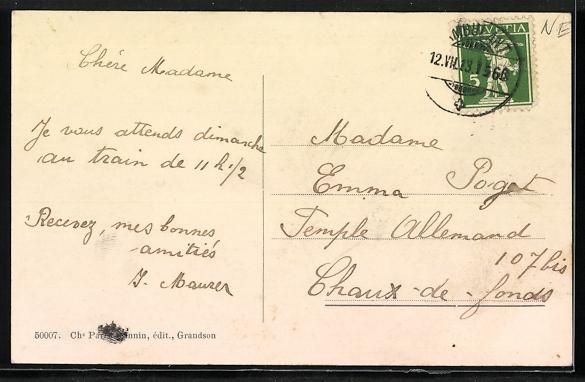 Chère Madame
Je vous attends dimanche
au train de 11 h. 1/2
Recevez, mes bonnes
amitiés
J. Maurer
50007. Chs édit., Grandson
HELVETIA
5
AMBULANT
12.VII.
NE
Madame
Emma Poget
Temple Allemand
107 bis
Chaux-de-fonds